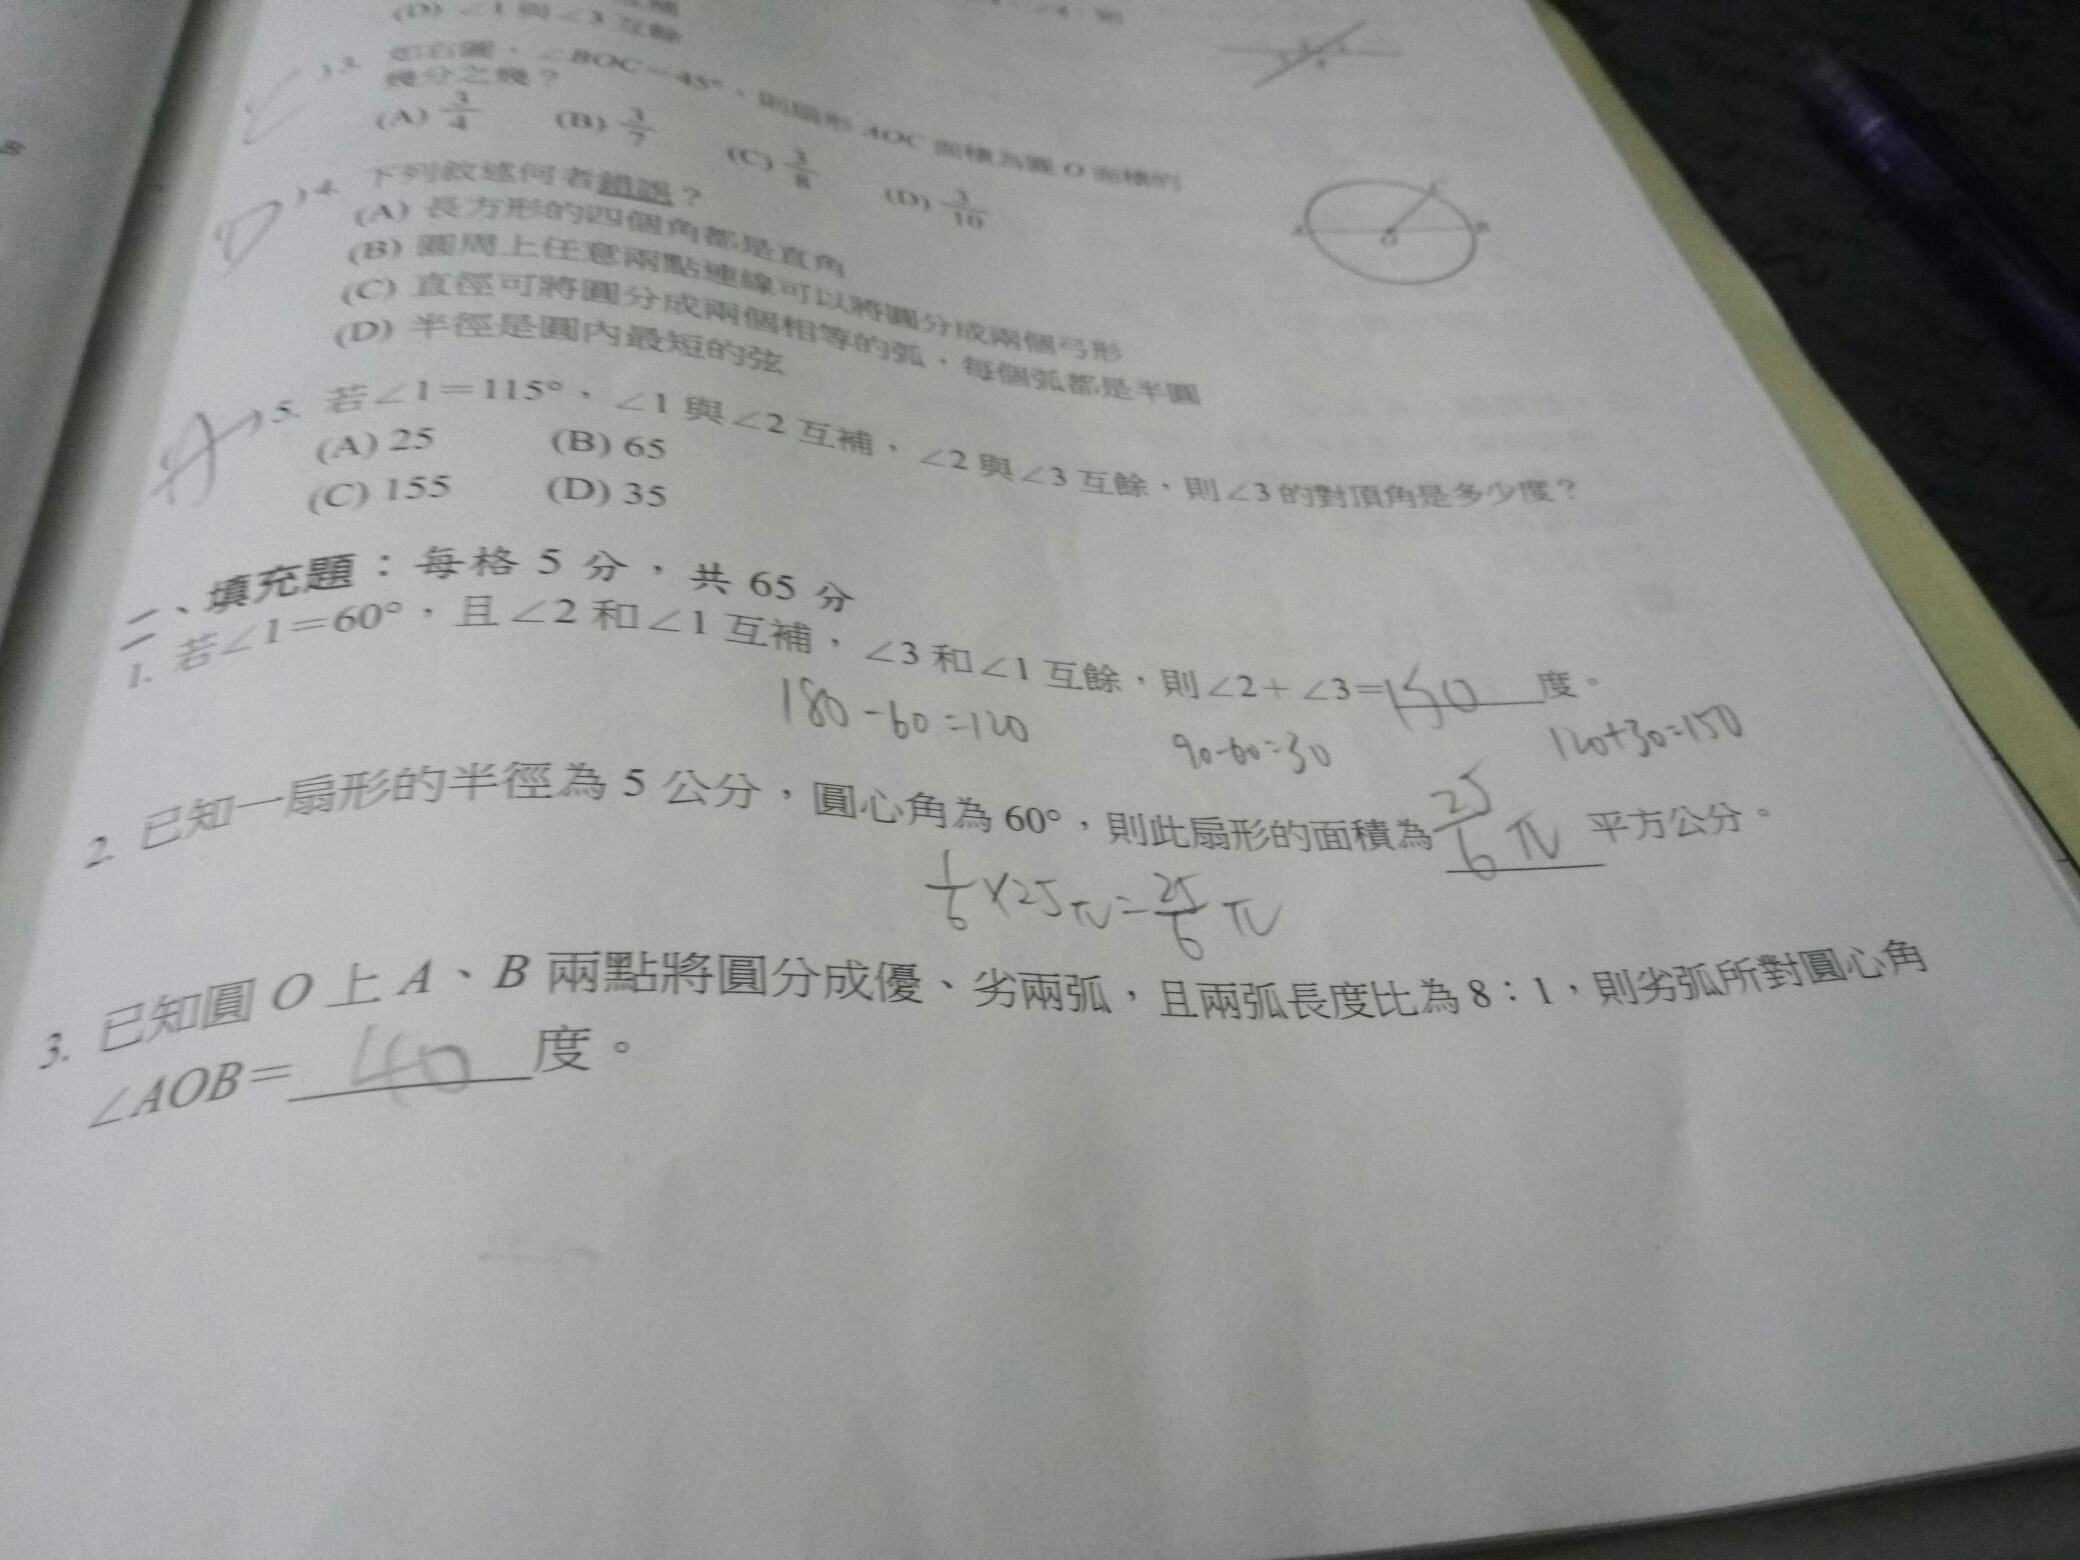 (D) ∠1與∠3互餘
3. 如右圖,∠BOC=45°,則扇形 AOC 面積為圓 O 面積的
幾分之幾?
(A) 3/4 (B) 3/7 (C) 3/8 (D) 3/10
C
A O B
D )4. 下列敘述何者錯誤?
(A) 長方形的四個角都是直角
(B) 圓周上任意兩點連線可以將圓分成兩個弓形
(C) 直徑可將圓分成兩個相等的弧,每個弧都是半圓
(D) 半徑是圓內最短的弦
)5. 若∠1=115°,∠1與∠2互補,∠2與∠3互餘,則∠3的對頂角是多少度?
(A) 25 (B) 65
(C) 155 (D) 35
二、填充題:每格 5 分,共 65 分
1. 若∠1=60°,且∠2和∠1互補,∠3和∠1互餘,則∠2+∠3=150度。
180-60=120 90-60=30 120+30=150
2. 已知一扇形的半徑為 5 公分,圓心角為 60°,則此扇形的面積為 25/6 π 平方公分。
1/6×25π=25/6 π
3. 已知圓 O 上 A、B 兩點將圓分成優、劣兩弧,且兩弧長度比為 8:1,則劣弧所對圓心角
∠AOB= 40 度。